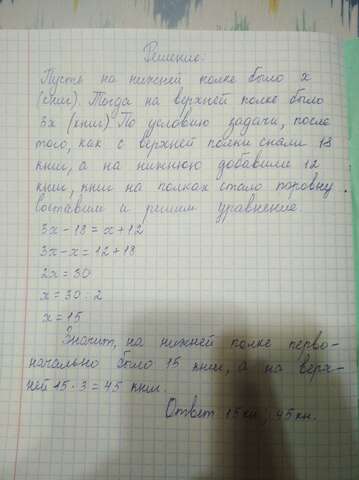 Решение.
Пусть на нижней полке было x
(книг). Тогда на верхней полке было
3x (книг). По условию задачи, после
того, как с верхней полки сняли 18
книг, а на нижнюю добавили 12
книг, книг на полках стало поровну.
Составим и решим уравнение.
3x - 18 = x + 12
3x - x = 12 + 18
2x = 30
x = 30 : 2
x = 15
Значит, на нижней полке перво-
начально было 15 книг, а на верх-
ней 15 · 3 = 45 книг.
Ответ 15 кн, 45 кн.